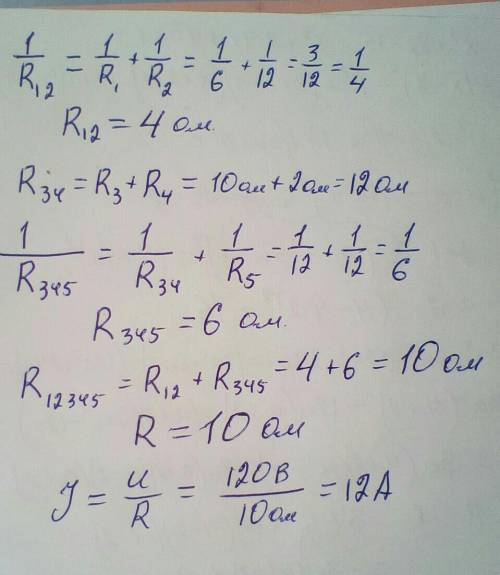 1/R₁₂ = 1/R₁ + 1/R₂ = 1/6 + 1/12 = 3/12 = 1/4
R₁₂ = 4 ом.
R₃₄ = R₃ + R₄ = 10ом + 2ом = 12ом
1/R₃₄₅ = 1/R₃₄ + 1/R₅ = 1/12 + 1/12 = 1/6
R₃₄₅ = 6 ом.
R₁₂₃₄₅ = R₁₂ + R₃₄₅ = 4 + 6 = 10 ом
R = 10 ом
J = U/R = 120В/10ом = 12А